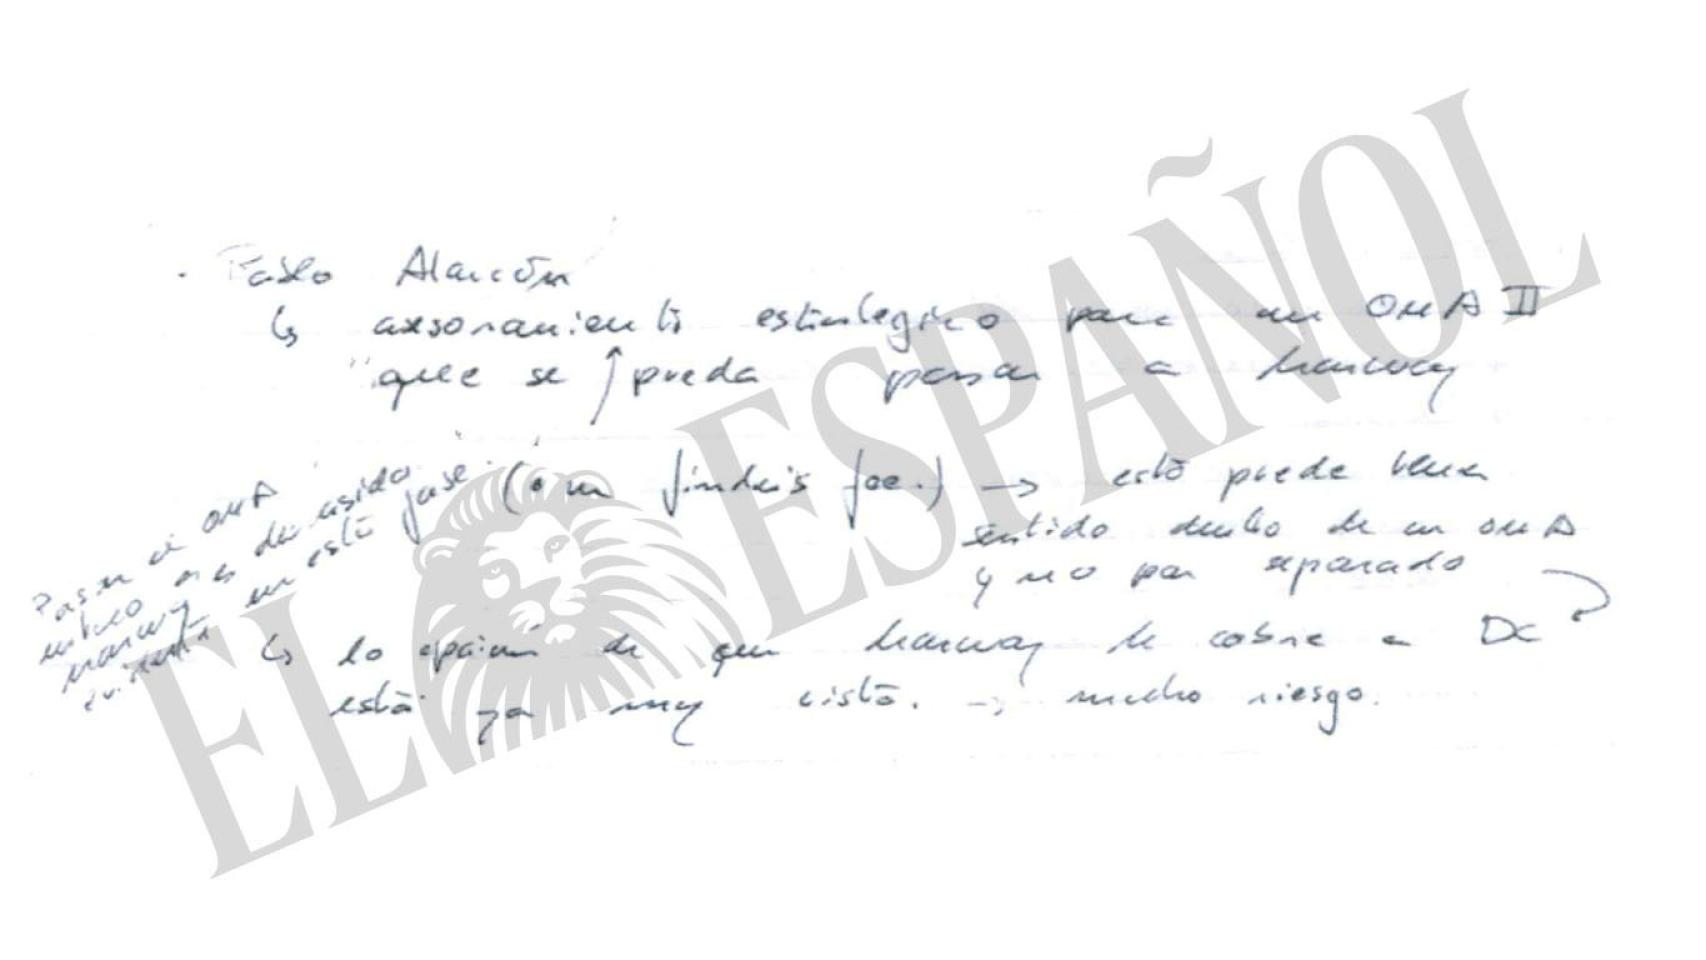 · Pablo Alarcón
↳ asesoramiento estratégico para un OMA II
que se pueda pasar a
(o un finder's fee.) → esto puede tener
sentido dentro de un OMA
y no por separado
↳ la opción de que le cobre a DC
está ya muy visto. → mucho riesgo.
Pasar de OMA
es demasiado
en esta fase.
EL ESPAÑOL